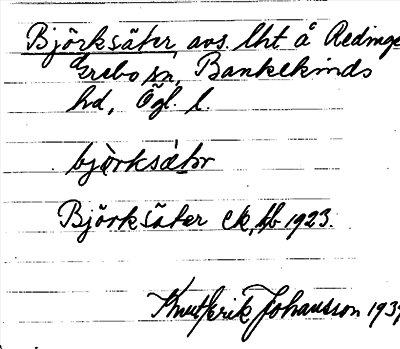 Björksäter, avs. lht å Redinge
Grebo sn, Bankekinds
hd, Ögl. l.
bjö̀rksä̀tər
Björksäter ek, kb 1923.
Knut Erik Johansson 1937